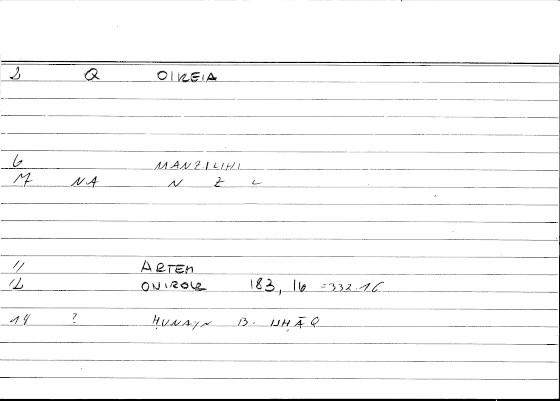 2 Q OIKEIA
6 MANZILIHI
M NA N Z L
11 ARTEM
12 ONIROK 183, 16 =332.16
14 ? ḤUNAYN B. ISḤĀQ